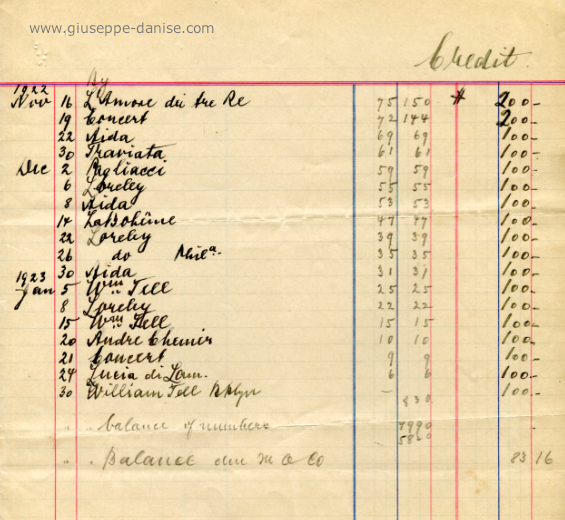 www.giuseppe-danise.com
Credit.
By
1922
Nov 16 L'Amore dei tre Re 75 150 # 200-
19 Concert 72 144 200-
22 Aida 69 69 100-
30 Traviata 61 61 100-
Dec 2 Pagliacci 59 59 100-
6 Loreley 55 55 100-
8 Aida 53 53 100-
14 La Bohême 47 47 100-
22 Loreley 39 39 100-
26 do Phila. 35 35 100-
30 Aida 31 31 100-
1923
Jan 5 Wm Tell 25 25 100-
8 Loreley 22 22 100-
15 Wm Tell 15 15 100-
20 Andre Chenier 10 10 100-
21 Concert 9 9 100-
24 Lucia di Lam. 6 6 100-
30 William Tell Bklyn - 100-
830
" " balance of numbers 4990 -
5820
" " Balance due M O Co 83 16